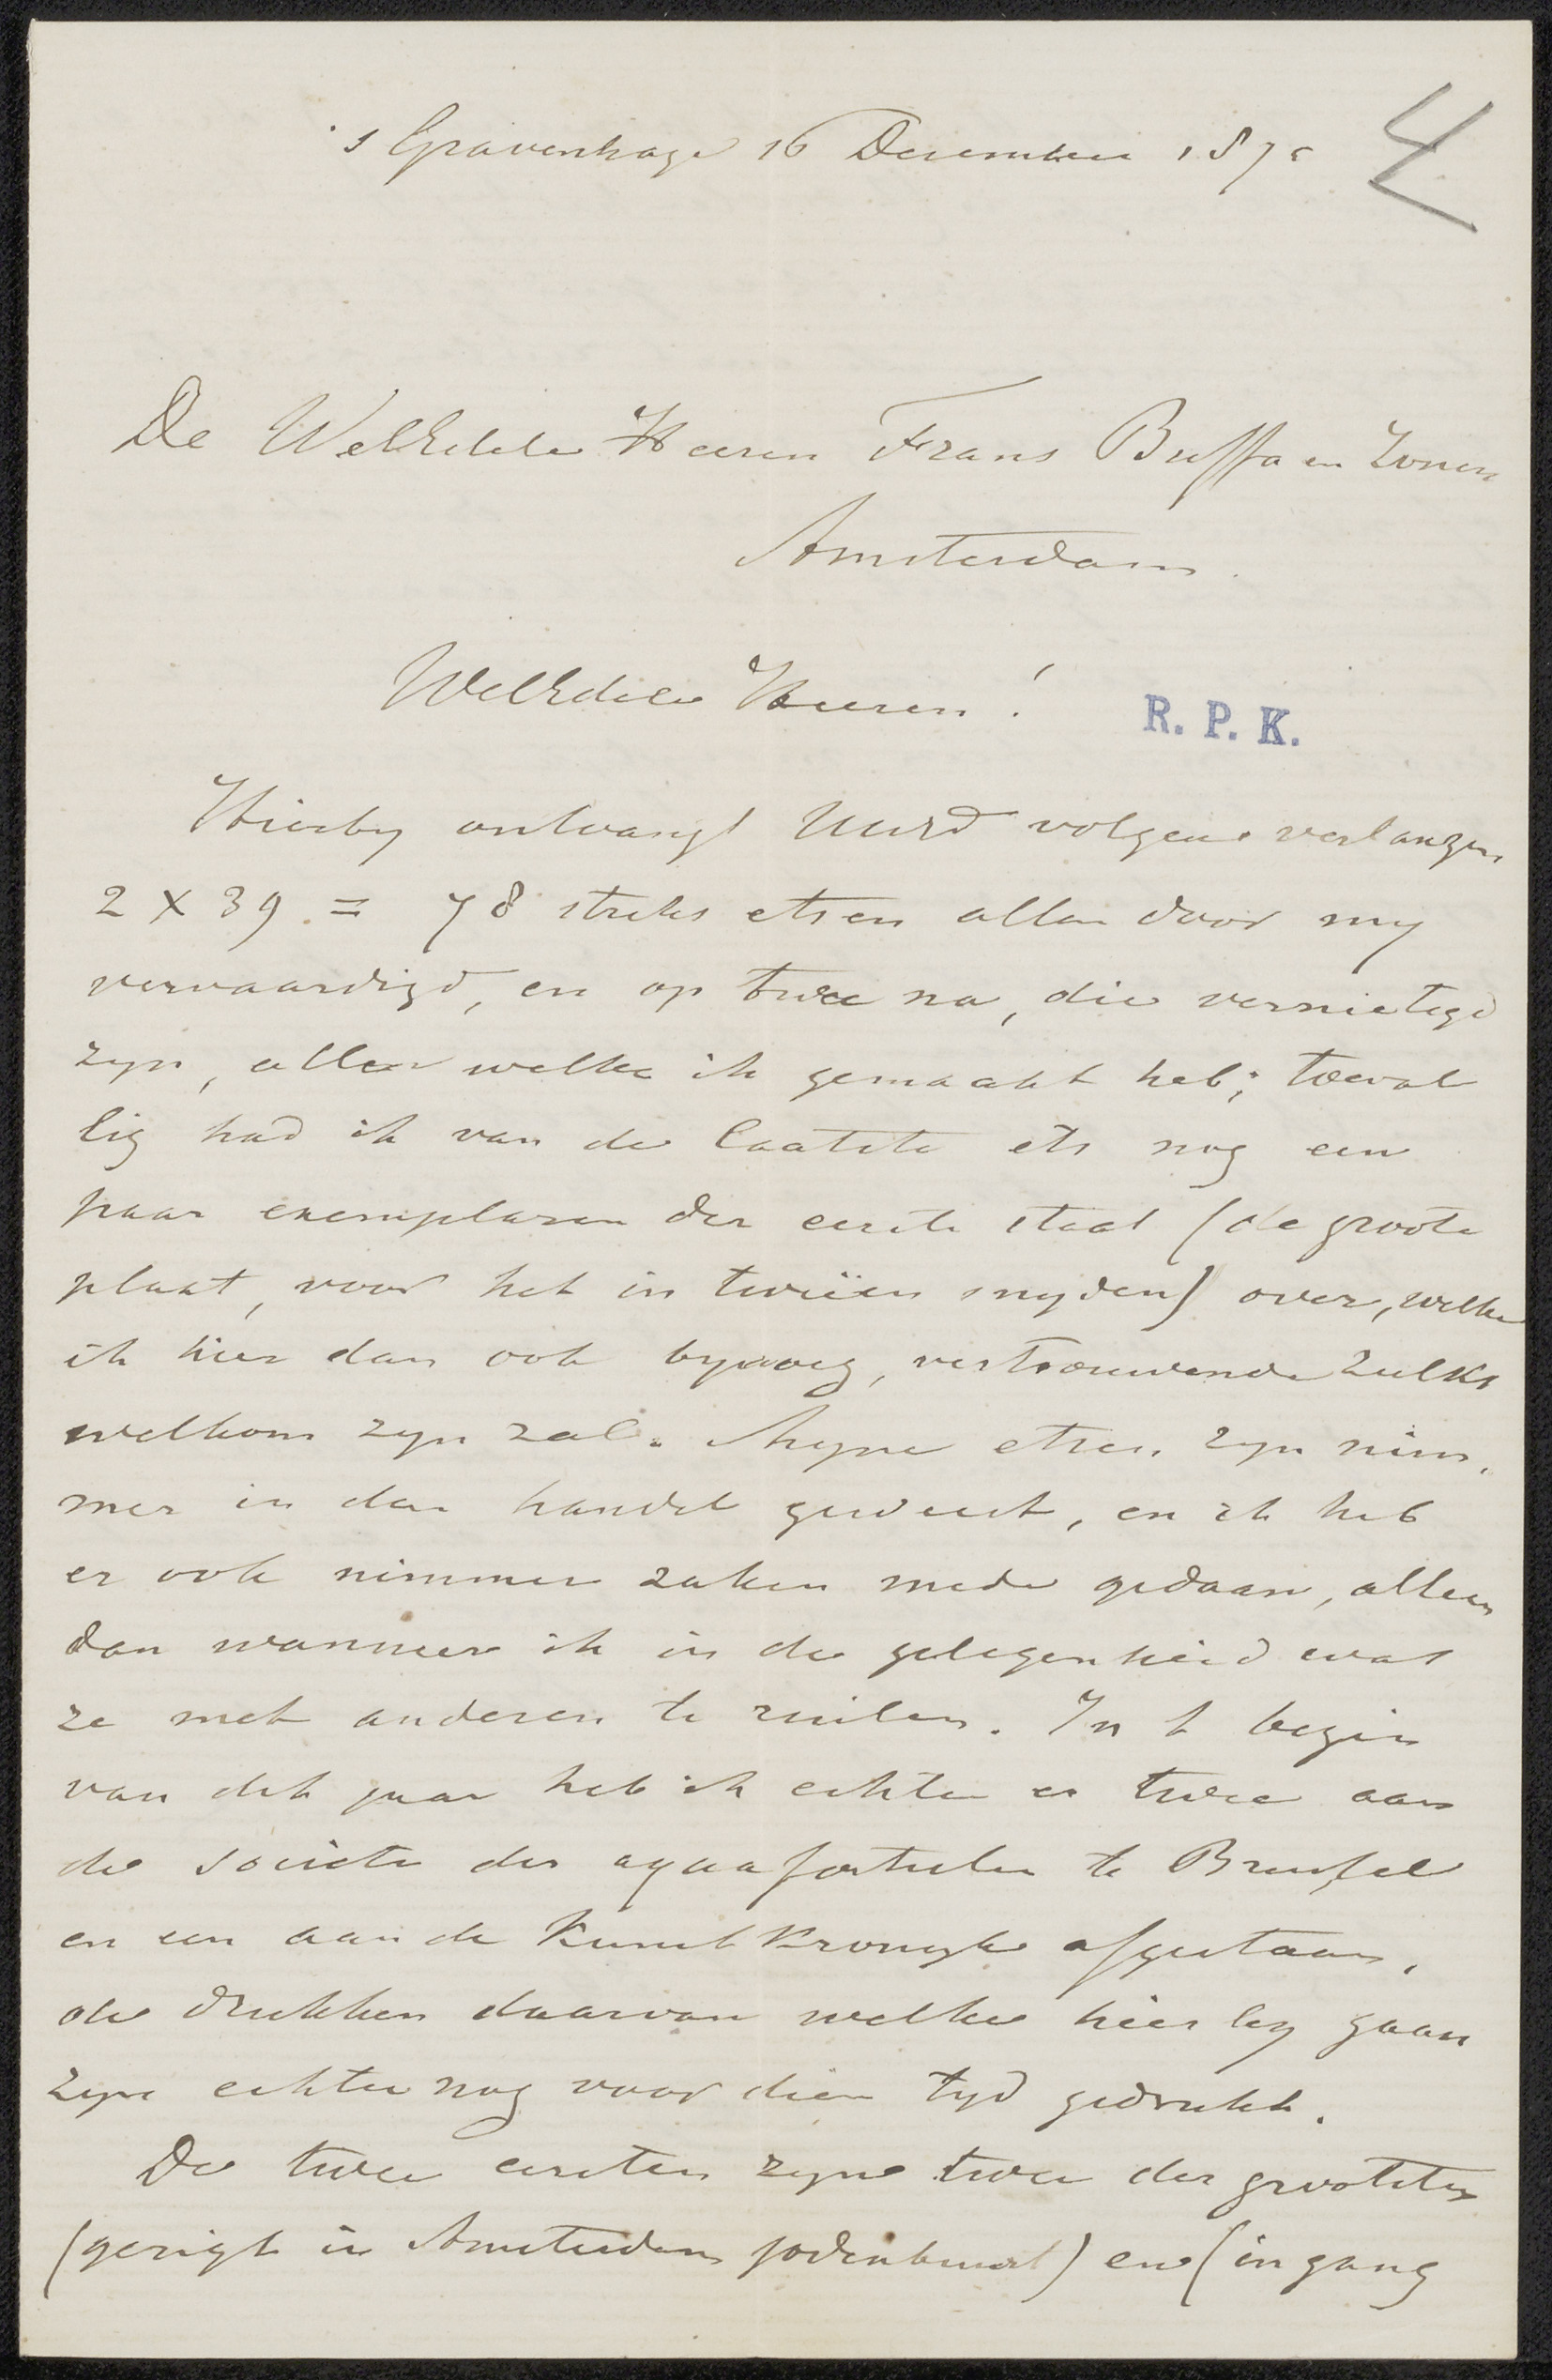 's Gravenhage 16 December 187
4
De WelEdele Heeren Frans Buffa en Zonen
Amsterdam.
WelEdele Heeren!
R. P. K.
Hierby ontvangt UwEd volgens verlangen
2 x 39 = 78 stuks etsen allen door my
vervaardigd, en op twee na, die vernietigd
zyn, allen welke ik gemaakt heb; toeval
lig had ik van de laatste ets nog een
paar exemplaren der eerste staat (de groote
plaat, voor het in tweiën snyden) over, welke
ik hier dan ook byvoeg, vertrouwende zulks
welkom zyn zal. Myne etsen zyn nim,
mer in den handel geweest, en ik heb
er ook nimmer zaken mede gedaan, alleen
dan wanneer ik in de gelegenheid was
ze met anderen te ruilen. In t begin
van dit jaar heb ik echter er twee aan
de societe der aquafortisten te Brussel
en een aan de Kunst Kronyk afgestaan,
de drukken daarvan welke hier by gaan
zyn echter nog voor dien tyd gedrukt.
De twee eersten zyn twee der grootsten
(gezigt in Amsterdam jodenbuurt) en (ingang